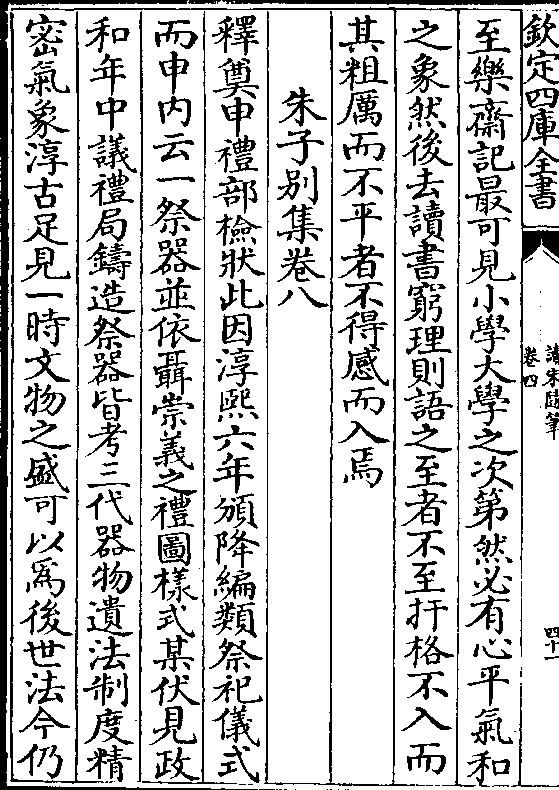 欽定四庫全書
讀朱隨筆
卷四
四十一
至樂齋記最可見小學大學之次第然必有心平氣和
之象然後去讀書窮理則語之至者不至扞格不入而
其粗厲而不平者不得感而入焉
朱子别集卷八
釋奠申禮部檢狀此因淳熙六年頒降編類祭祀儀式
而申内云一祭器並依聶崇義之禮圖樣式某伏見政
和年中議禮局鑄造祭器皆考三代器物遺法制度精
密氣象淳古足見一時文物之盛可以為後世法今仍